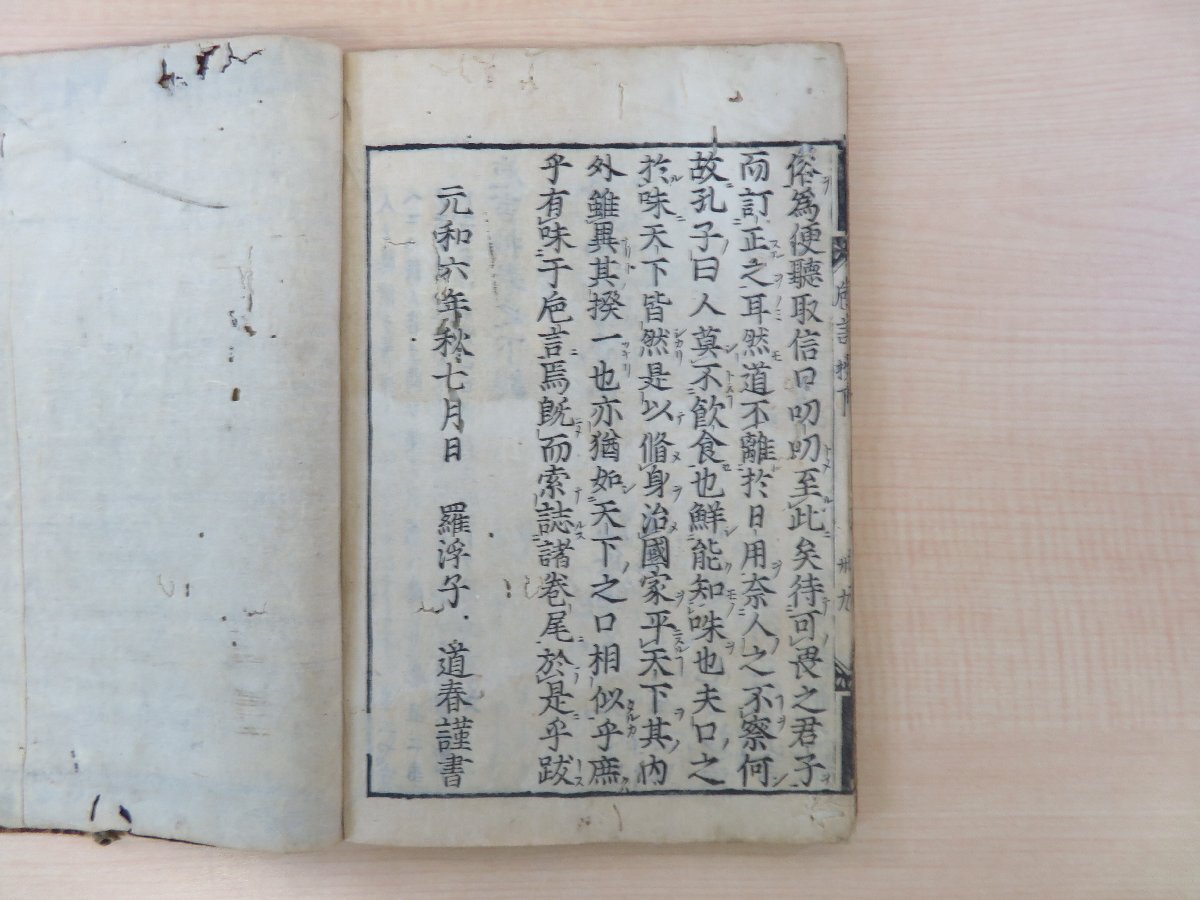 俗為便聽取信口叨叨至此矣待可畏之君子
而訂正之耳然道不離於日用奈人之不察何
故孔子曰人莫不飲食也鮮能知味也夫口之
於味天下皆然是以脩身治國家平天下其內
外雖異其揆一也亦猶如天下之口相似乎庶
乎有味于巵言焉既而索誌諸卷尾於是乎跋
元和六年秋七月日 羅浮子 道春謹書
巵言抄下 卅九